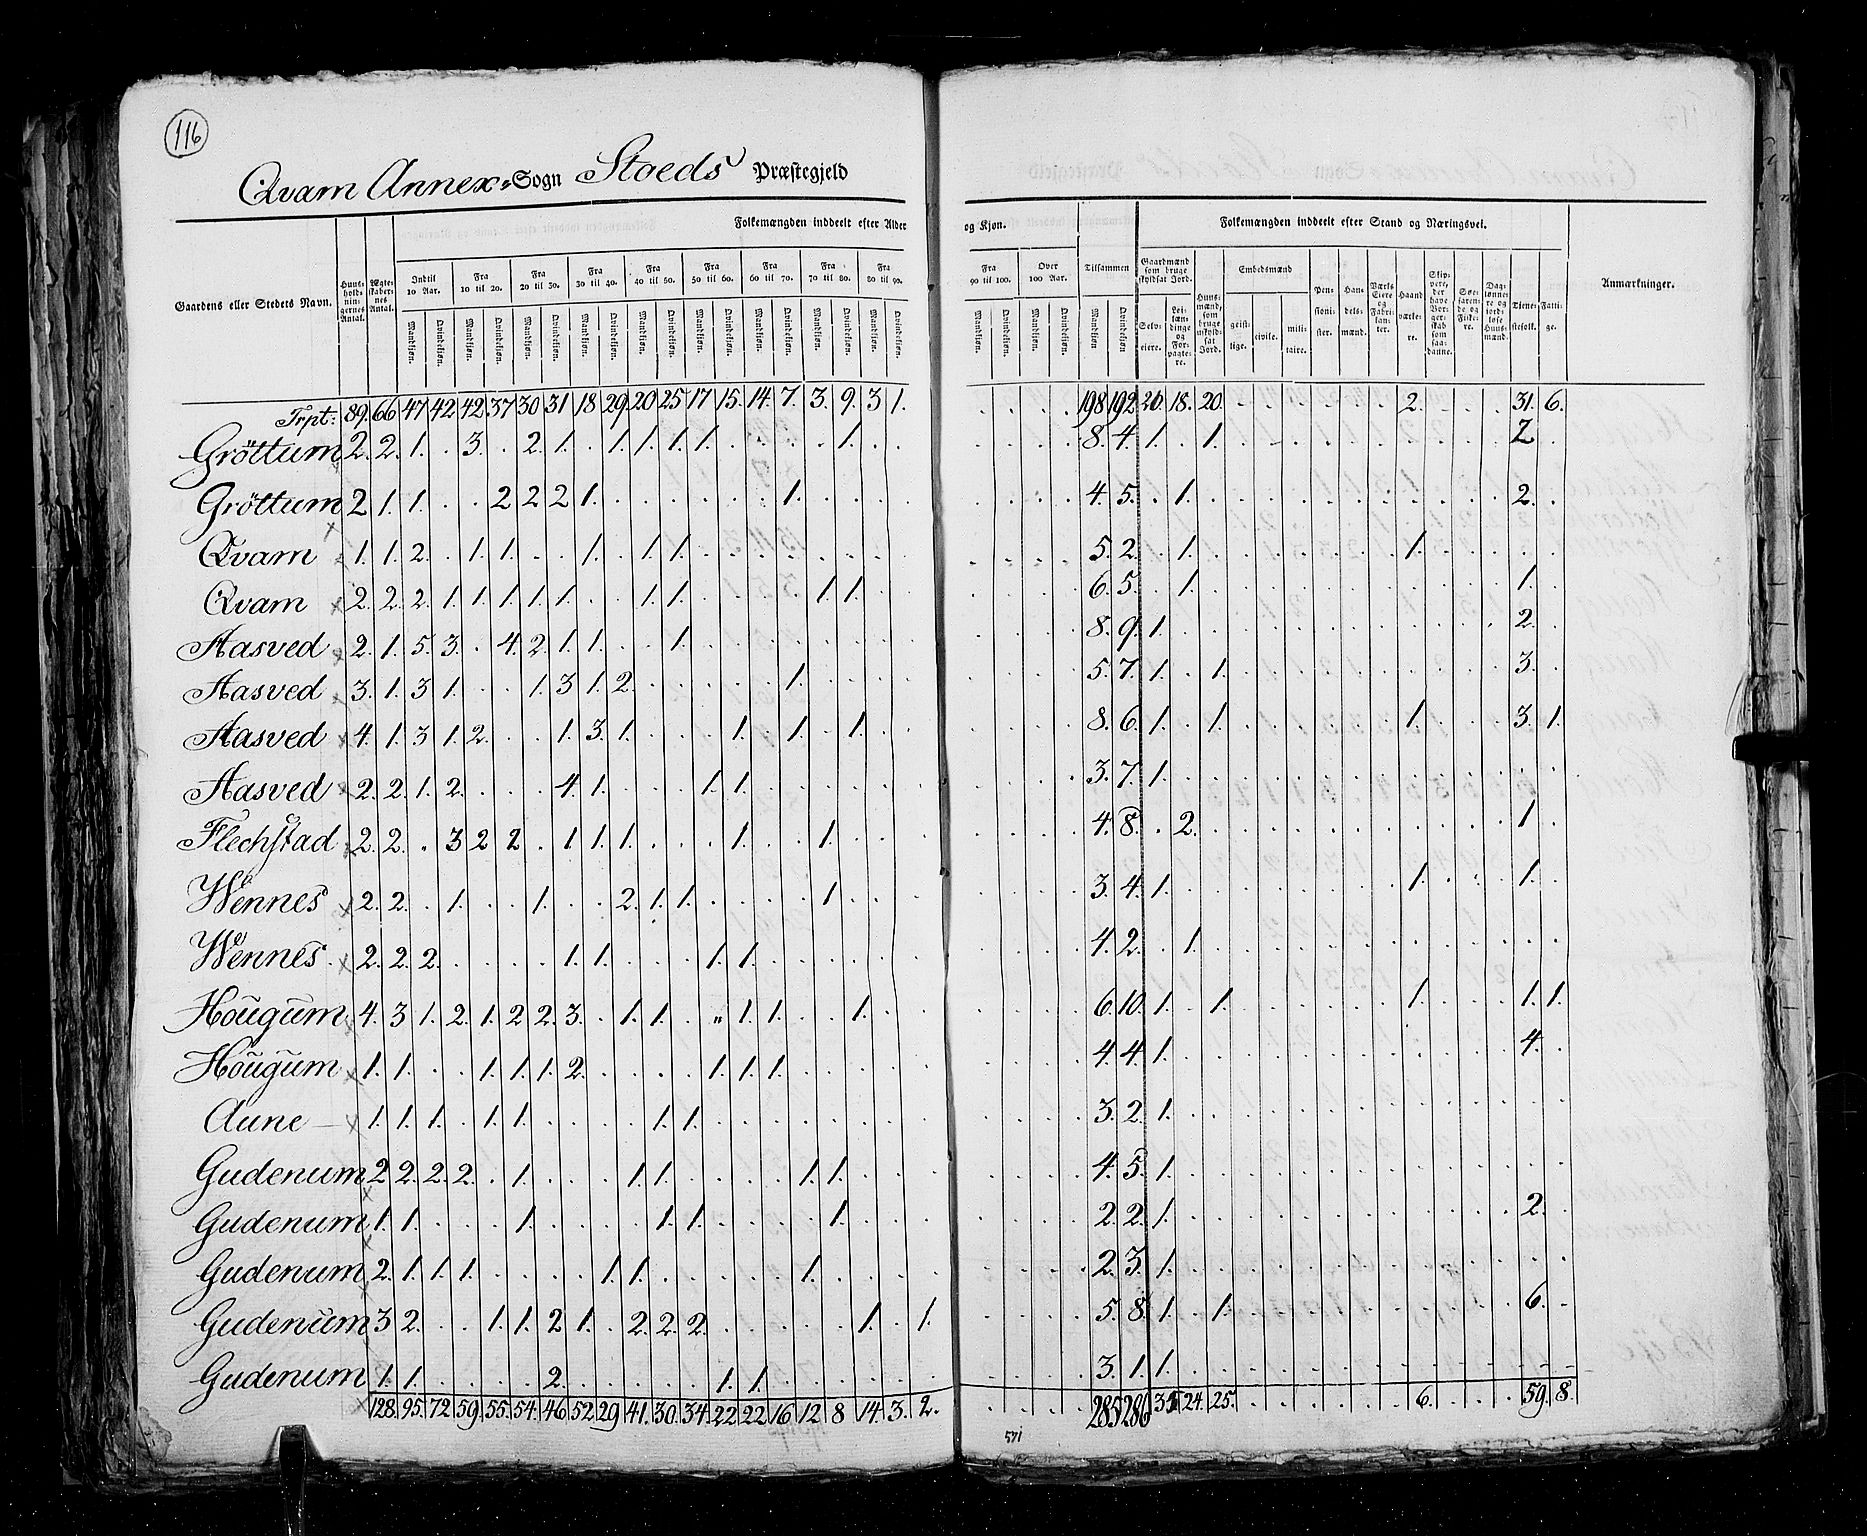 116
Qvam Annex-Sogn Stoeds Præstegjeld
Folkemængden inddeelt efter Alder og Kjøn. Folkemængden inddeelt efter Stand og Næringsvei.
Gaardens eller Stedets Navn. Huus-holdnin-gernes Antal. Ægte-skaber-nes Antal. Indtil 10 Aar. Fra 10 til 20. Fra 20 til 30. Fra 30 til 40. Fra 40 til 50. Fra 50 til 60. Fra 60 til 70. Fra 70 til 80. Fra 80 til 90. Fra 90 til 100. Over 100 Aar. Tilsammen Gaardmænd som bruge skyldsat Jord. Huus-mænd, som bruge uskyld-sat Jord. Embedsmænd Pen-sioni-ster. Han-dels-mænd. Værks Eiere og Fabri-kan-ter. Haand-værke-re. Skip-pere, der have Bor-ger-skab som saa-danne. Søe-faren-de og Fiske-re. Dag-lønne-re og jord-løse Huus-mænd. Tiene-stefolk. Fatti-ge. Anmærkninger.
Mandkjøn. Qvindekjøn. Selv-eiere. Lei-læn-dinge og For-pagte-re. geist-lige. civile. mili-taire.
Trpt: 89. 66 47 42 42. 37 30 31 18 29 20 25 17 15. 14. 7. 3. 9. 3 1. 198 192 20. 18. 20. 2. 31. 6.
Gröttum 2. 2. 1. . 3. . 2. 1. . 1. 1. 1. 1. . . . . 1. . . 8. 4. 1. . 1. 2.
Gröttum 2 1. 1. . . 2 2 2 1. . . . . . . 1. . . . . 4. 5. . 1. 2.
Qvam 1. 1. 2. . 1. 1. . . 1. . 1. 1. . . . . . . . . 5. 2. . 1. 1.
Qvam 2. 2. 2. 1. 1. 1. 1. 1. . . 1. 1. . . . . 1. 1. . . 6. 5. . 1. 1.
Aasved 2. 1. 5. 3. . 4. 2. 1. 1. . . 1. . . . . . . . . 8. 9. 1. 2.
Aasved 3. 1. 3 1. . . 1. 3 1. 2. . . . . . 1. . . . . 5. 7. 1. . 1. 3.
Aasved 4. 1. 3 1. 2. . . 1. 3. 1. . . . 1. . 1. . 1. . . 8. 6. 1. . 1. 1. 3. 1.
Aasved 2. 2. 1. 2. . . . 4. 1. . . . 1. 1. . . . . . . 3. 7. 1.
Flechstad 2. 2. . 3 2 2 . 1 1. 1. . . . 1. . . 1. . . . 4. 8. . 2. 1.
Wennes 2. 2. . 1. . . 1. . . 2. 1. 1. . . . . 1. . . . 3. 4. 1. 1. 1.
Wennes. 2. 2. 2. . . . . 1. 1. . . . 1. 1. . . . . . . 4. 2. . 1.
Hougum 4. 3 1. 2. 1. 2 2. 3. . 1. 1. . " 1. 1. . . 1. . . 6. 10. 1. . 1. 1. 1. 1.
Hougum 1. 1. . . 1. 1. 1. 2. . . . . 1. 1. 1. . . . . . 4. 4. 1. 4.
Aune — 1. 1. 1. . 1. 1. . . . . 1. 1. . . . . . . . . 3. 2. 1.
Gudenum 2 2. 2. 2. . 1. . . . 1. 1. . . . . 1. 1. . . . 4. 5. 1.
Gudenum 1. 1. . . . 1. . . . . 1. 1. . . . . 1. . . . 2. 2. 1. 2.
Gudenum 2. 1. 1. 1. . . . . 1. 1. . . . . . 1. . . . . 2. 3. 1.
Gudenum 3 2. . . 1. 1. 2 1. . 2. 2. 2. . . . . . 1. . 1. 5. 8. 1. . 1. 6.
Gudenum 1. 1. . . . . 2. . . . . . 1. 1. . . . . . . 3. 1. 1.
128. 95. 72 59. 55. 54. 46 52. 29 41. 30. 34. 22 22 16 12 8 14. 3. 2. 285 286 24. 25. 6. 59. 8.
571